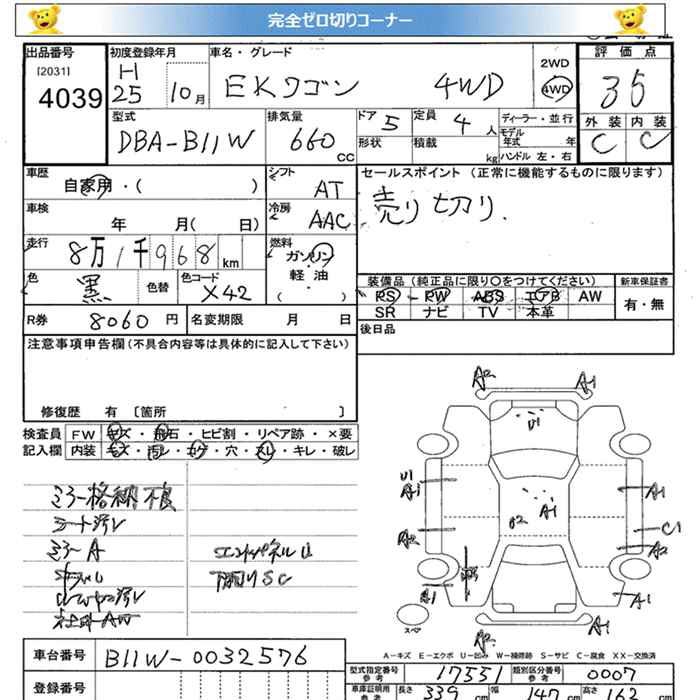 完全ゼロ切りコーナー
出品番号 初度登録年月 車名・グレード 評価点
[2031]
4039
H
25 10月
EKワゴン 4WD
2WD
4WD
35
外装 内装
C C
型式 排気量 ドア 定員 ディーラー・並行
DBA-B11W 660 cc 5 4人
モデル年式 年
形状 積載 kg ハンドル 左・右
車歴 シフト セールスポイント (正常に機能するものに限ります)
自家用・( ) AT
売り切り.
車検 冷房
年 月( 日) AAC
走行 燃料
8万1千968km ガソリン
軽・油
( )
色 色替 色コード
黒 X42
装備品(純正品に限り〇をつけてください) 新車保証書
PS PW ABS エアB AW 有・無
SR ナビ TV 本革
R券 8060円 名変期限 月 日
後日品
注意事項申告欄(不具合内容等は具体的に記入して下さい)
修復歴 有 [箇所 ]
検査員 FW キズ・飛石・ヒビ割・リペア跡・×要
記入欄 内装 キズ・汚レ・コゲ・穴・スレ・キレ・破レ
ミラー格納不良
シート汚レ
ミラーA
エンドパネルU
雨削りSC
A2 A1
U1
U1
A1
A1
A1
A2
C1
A2
A1
A1
A2
スペア
A-キズ E-エクボ U-凹み W-補修跡 S-サビ C-腐食 XX-交換済
車台番号 B11W-0032576
型式指定番号 参考 17551 類別区分番号 参考 0007
登録番号
車庫証明用 参考 長さ 339cm 幅 147cm 高さ 162cm